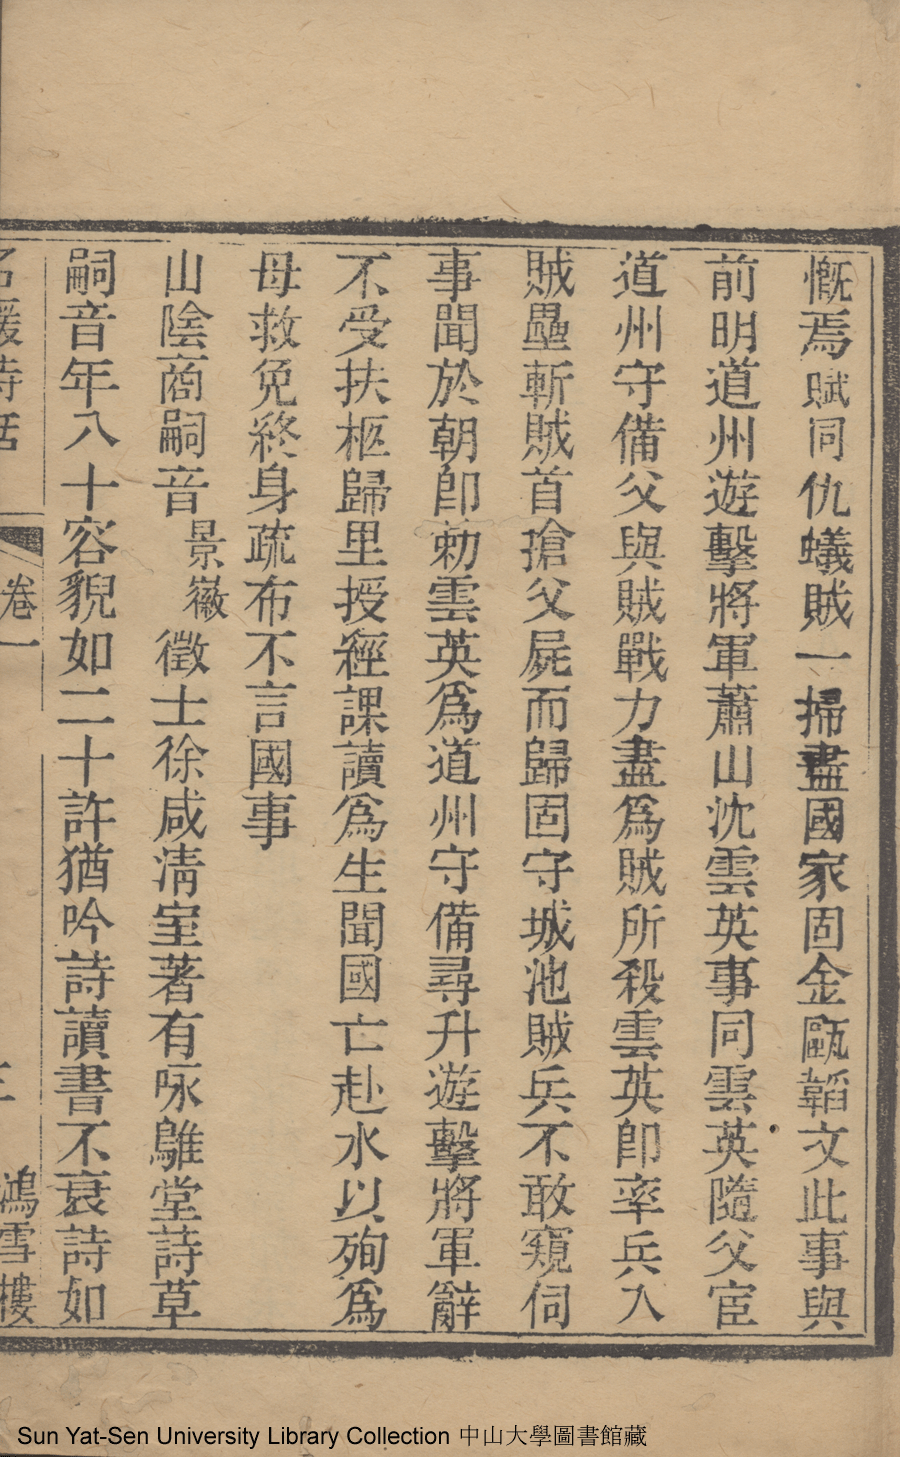 慨焉賦同仇蟻賊一掃盡國家固金甌韜文此事與
前明道州遊擊將軍蕭山沈雲英事同雲英隨父宦
道州守備父與賊戰力盡爲賊所殺雲英卽率兵入
賊壘斬賊首搶父屍而歸固守城池賊兵不敢窺伺
事聞於朝卽勅雲英爲道州守備尋升遊擊將軍辭
不受扶柩歸里授經課讀爲生聞國亡赴水以殉爲
母救免終身疏布不言國事
山陰商嗣音景徽徵士徐咸清室著有咏鵻堂詩草
嗣音年八十容貌如二十許猶吟詩讀書不衰詩如
名媛詩話 卷一 三 鴻雪樓
Sun Yat-Sen University Library Collection 中山大學圖書館藏